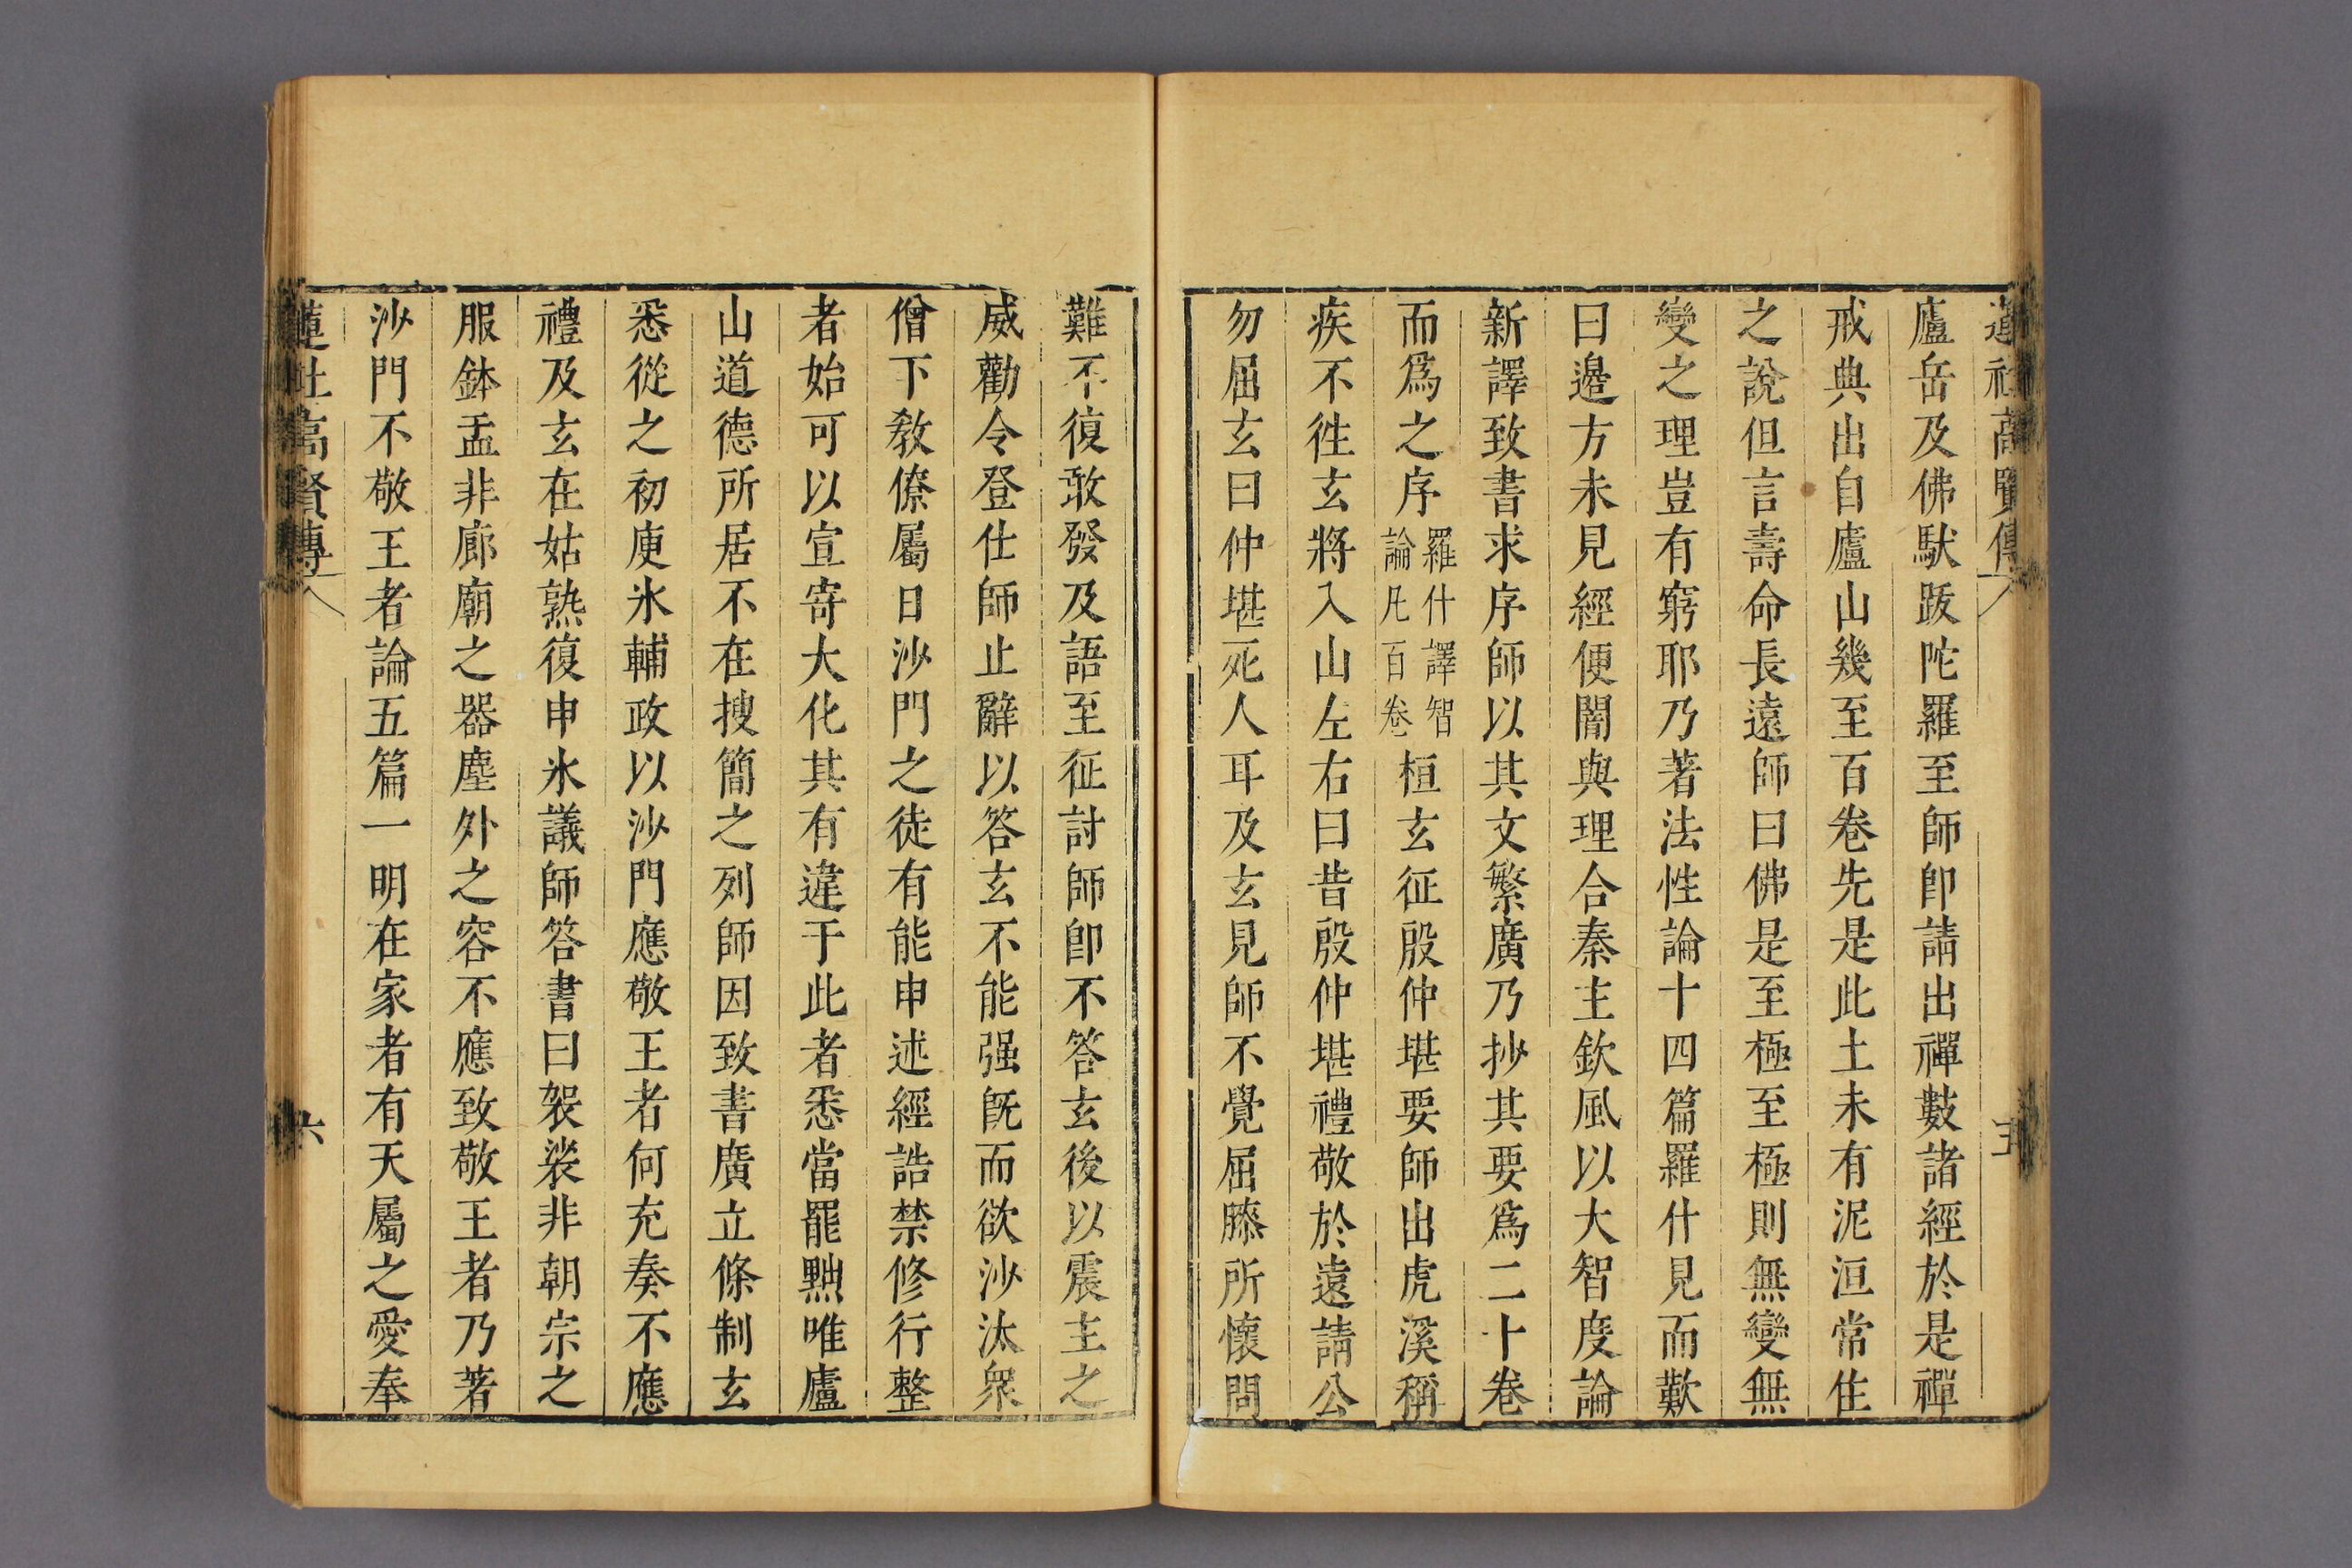 蓮社高賢傳
五
廬岳及佛馱跋陀羅至師卽請出禪數諸經於是禪
戒典出自廬山幾至百卷先是此土未有泥洹常住
之說但言壽命長遠師曰佛是至極至極則無變無
變之理豈有窮耶乃著法性論十四篇羅什見而歎
曰邉方未見經便闇與理合秦主欽風以大智度論
新譯致書求序師以其文繁廣乃抄其要爲二十卷
而爲之序羅什譯智論凡百卷桓玄征殷仲堪要師出虎溪稱
疾不徃玄將入山左右曰昔殷仲堪禮敬於遠請公
勿屈玄曰仲堪死人耳及玄見師不覺屈膝所懷問
難不復敢發及語至征討師卽不答玄後以震主之
威勸令登仕師止辭以答玄不能强旣而欲沙汰衆
僧下敎僚屬曰沙門之徒有能申述經誥禁修行整
者始可以宣寄大化其有違于此者悉當罷黜唯廬
山道德所居不在搜簡之列師因致書廣立條制玄
悉從之初庾氷輔政以沙門應敬王者何充奏不應
禮及玄在姑熟復申氷議師答書曰袈裟非朝宗之
服鉢盂非廊廟之器塵外之容不應致敬王者乃著
沙門不敬王者論五篇一明在家者有天屬之愛奉
蓮社高賢傳
六